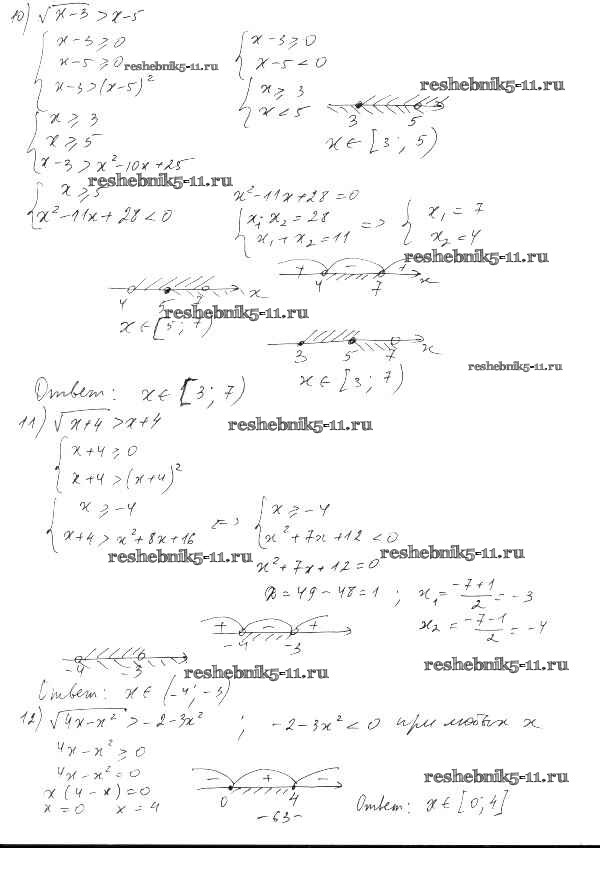 10) √x-3 > x-5
{ x-3 ≥ 0
x-5 ≥ 0 reshebnik5-11.ru
x-3 > (x-5)²
{ x-3 ≥ 0
x-5 < 0
reshebnik5-11.ru
{ x ≥ 3
x < 5
3 5
x ∈ [3; 5)
{ x ≥ 3
x ≥ 5
x-3 > x²-10x+25
reshebnik5-11.ru
{ x ≥ 5
x²-11x+28 < 0
x²-11x+28=0
{ x₁·x₂=28
x₁+x₂=11 => { x₁=7
x₂=4
reshebnik5-11.ru
+ - +
4 7 x
4 5 7 x
reshebnik5-11.ru
x ∈ [5; 7)
3 5 7 x
reshebnik5-11.ru
x ∈ [3; 7)
Ответ: x ∈ [3; 7)
11) √x+4 > x+4
reshebnik5-11.ru
{ x+4 ≥ 0
x+4 > (x+4)²
{ x ≥ -4
x+4 > x²+8x+16 <=> { x ≥ -4
x²+7x+12 < 0
reshebnik5-11.ru
reshebnik5-11.ru
x²+7x+12=0
D=49-48=1 ; x₁= -7+1/2 = -3
x₂= -7-1/2 = -4
+ - +
-4 -3
-4 -3
reshebnik5-11.ru
reshebnik5-11.ru
Ответ: x ∈ (-4; -3)
12) √4x-x² > -2-3x² ; -2-3x² < 0 при любых x
4x-x² ≥ 0
4x-x²=0
x(4-x)=0
x=0 x=4
- + -
0 4
reshebnik5-11.ru
Ответ: x ∈ [0; 4]
-63-